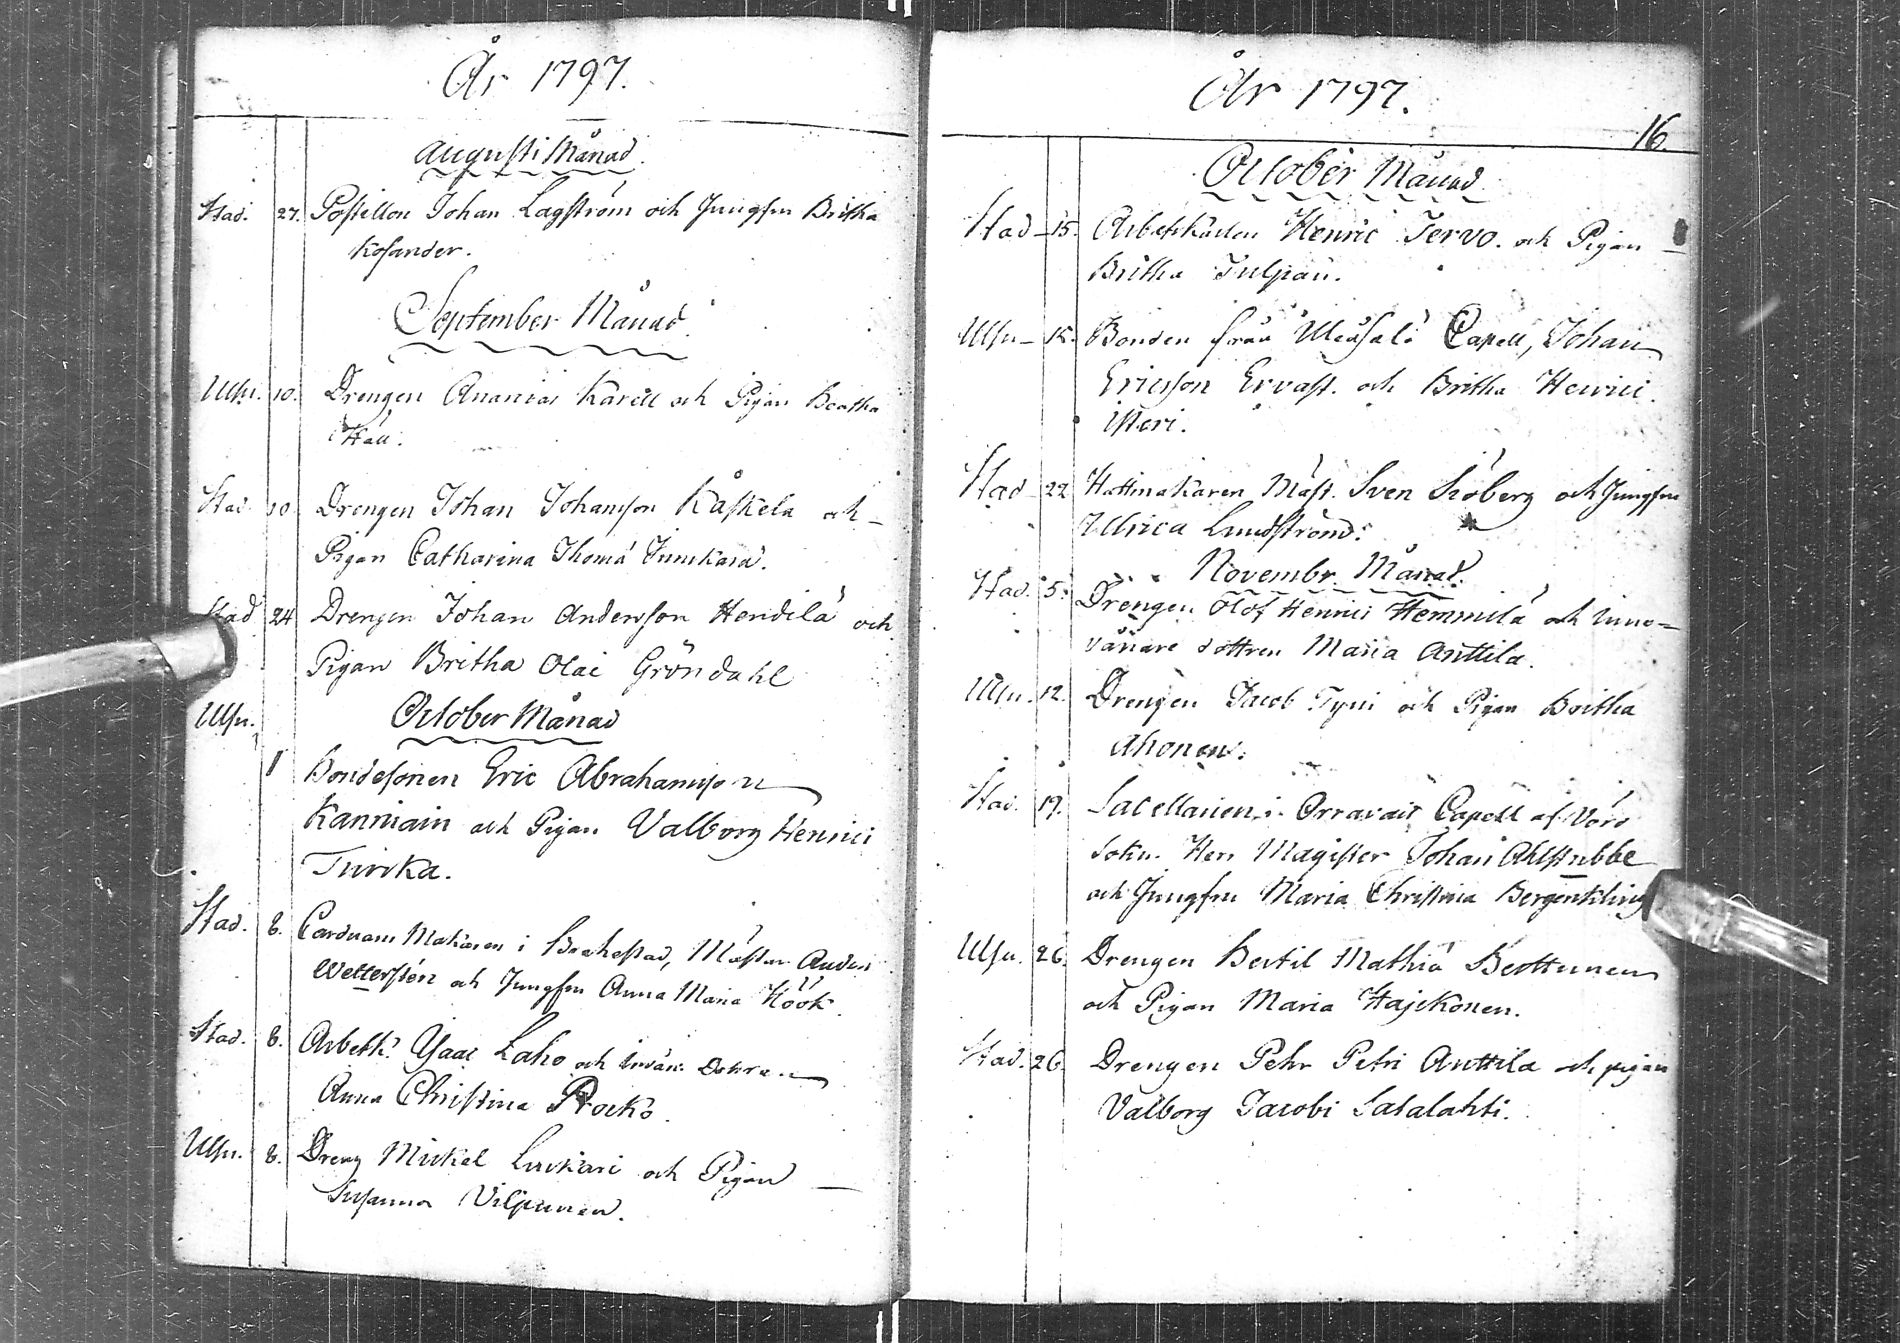 År 1797.
Augusti Månad.
Stad. 27. Postillon Johan Lagström och Jungfru Britha
Kosander.
September Månad.
Ulsn. 10. Drengen Ananias Karell och Pigan Beatha
Hall.
Stad 10. Drengen Johan Johansson Kåskela och
Pigan Catharina Thomæ Junnkara.
Stad 24 Drengen Johan Andersson Hendilä och
Pigan Britha Olai Gröndahl
Ulsn. October Månad
1 Bondesonen Eric Abrahamsson
Kanniain och Pigan Valborg Henrici
Turkka.
Stad. 8. Carduans Makaren i Brahestad, Mästar Anders
Wetterstén och Jungfru Anna Maria Höök.
Stad. 8. Arbetk. Isaac Laho och Invån. Dottren
Anna Christina Procko.
Ulsn. 8. Dreng Mickel Luukari och Pigan
Susanna Vilpunen.
År 1797.
16.
October Månad
Stad 15. Arbetskarlen Henric Jervo. och Pigan
Britha Tulpan.
Ulsn 15. Bonden från Uleåsalo Capell, Johan
Ericsson Ervast. och Britha Henrici
Meri.
Stad 22 Hattmakaren Mäst. Sven Siöberg och Jungfru
Ulrica Lundström.
Novembr. Månad.
Stad. 5. Drengen Olof Henrici Hemmilä och Inne-
vånare dottren Maria Anttila.
Ulsn. 12. Drengen Jacob Tyni och Pigan Britha
Ahonen.
Stad. 19. Sacellanen i Orravais Capell af Vörå
Sokn. Herr Magister Johan Ahlstubbe
och Jungfru Maria Christina Bergenkling
Ulsn. 26. Drengen Bertil Mathiæ Berttunen
och Pigan Maria Hajckonen.
Stad. 26. Drengen Pehr Petri Anttila och pigan
Valborg Jacobi Satalahti.